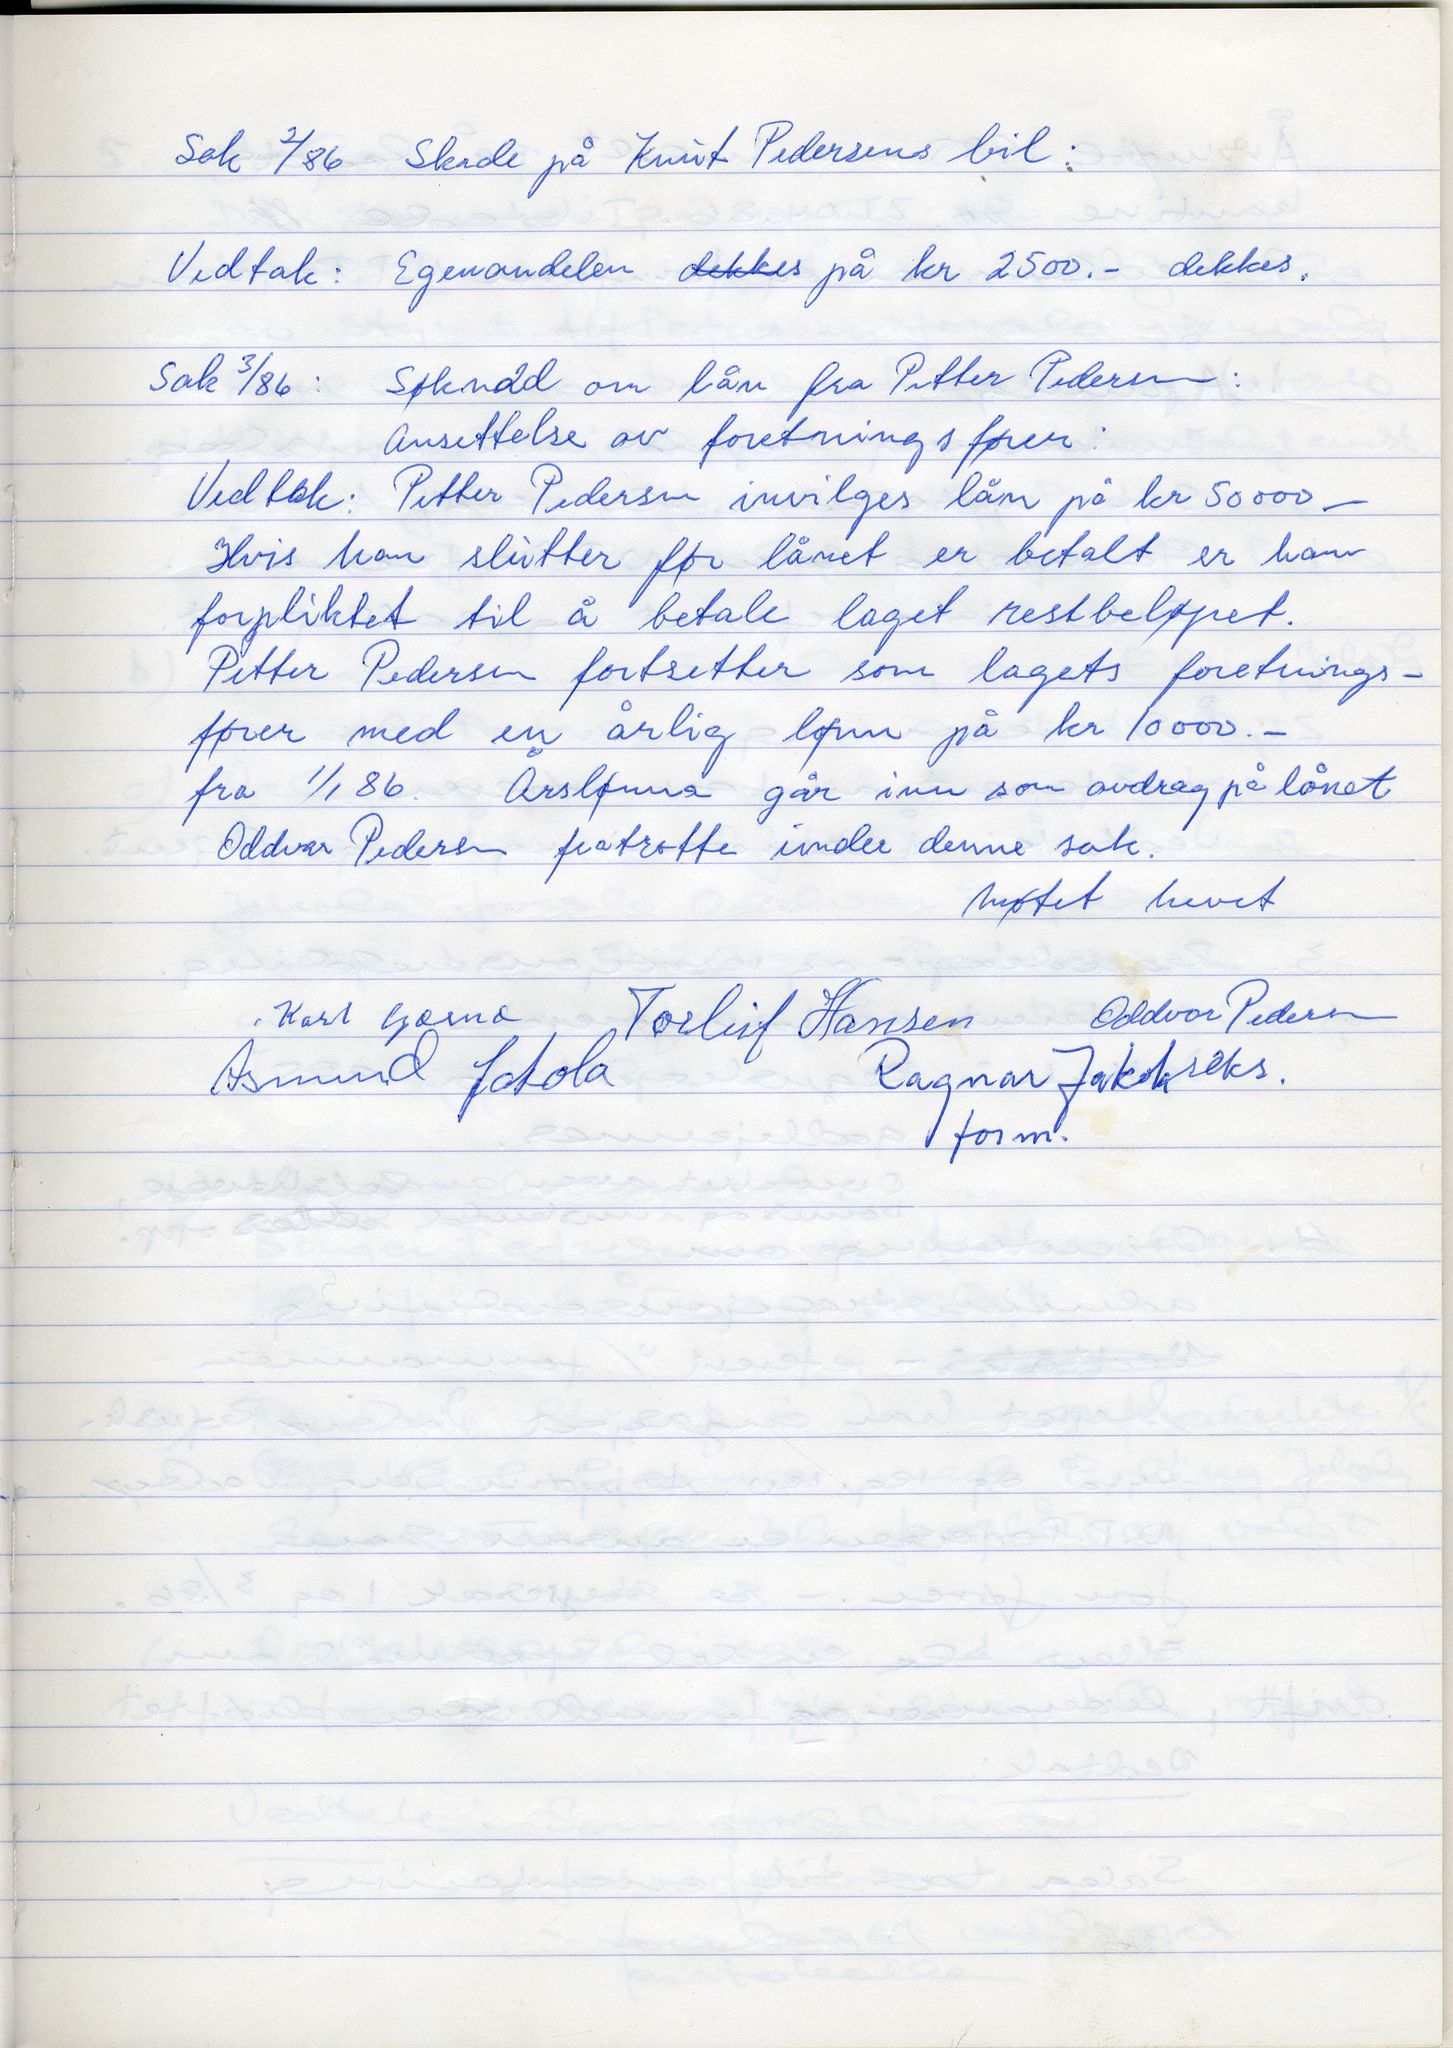 Sak 2/86 Skade på Knut Pedersens bil:
Vedtak: Egenandelen dekkes på kr 2500.- dekkes.
Sak 3/86: Søknad om lån fra Petter Pedersen:
Ansettelse av foretningsfører:
Vedtak: Petter Pedersen invilges lån på kr 50000.-
Hvis han slutter før lånet er betalt er han
forpliktet til å betale laget restbeløpet.
Petter Pedersen fortsetter som lagets foretnings-
fører med en årlig lønn på kr 10000.-
fra 1/1 86. Årslønna går inn som avdrag på lånet
Oddvar Pedersen fratrotte under denne sak.
Møtet hevet
Karl Torleif Hansen Oddvar Pedersen
Asmund Ragnar
form.